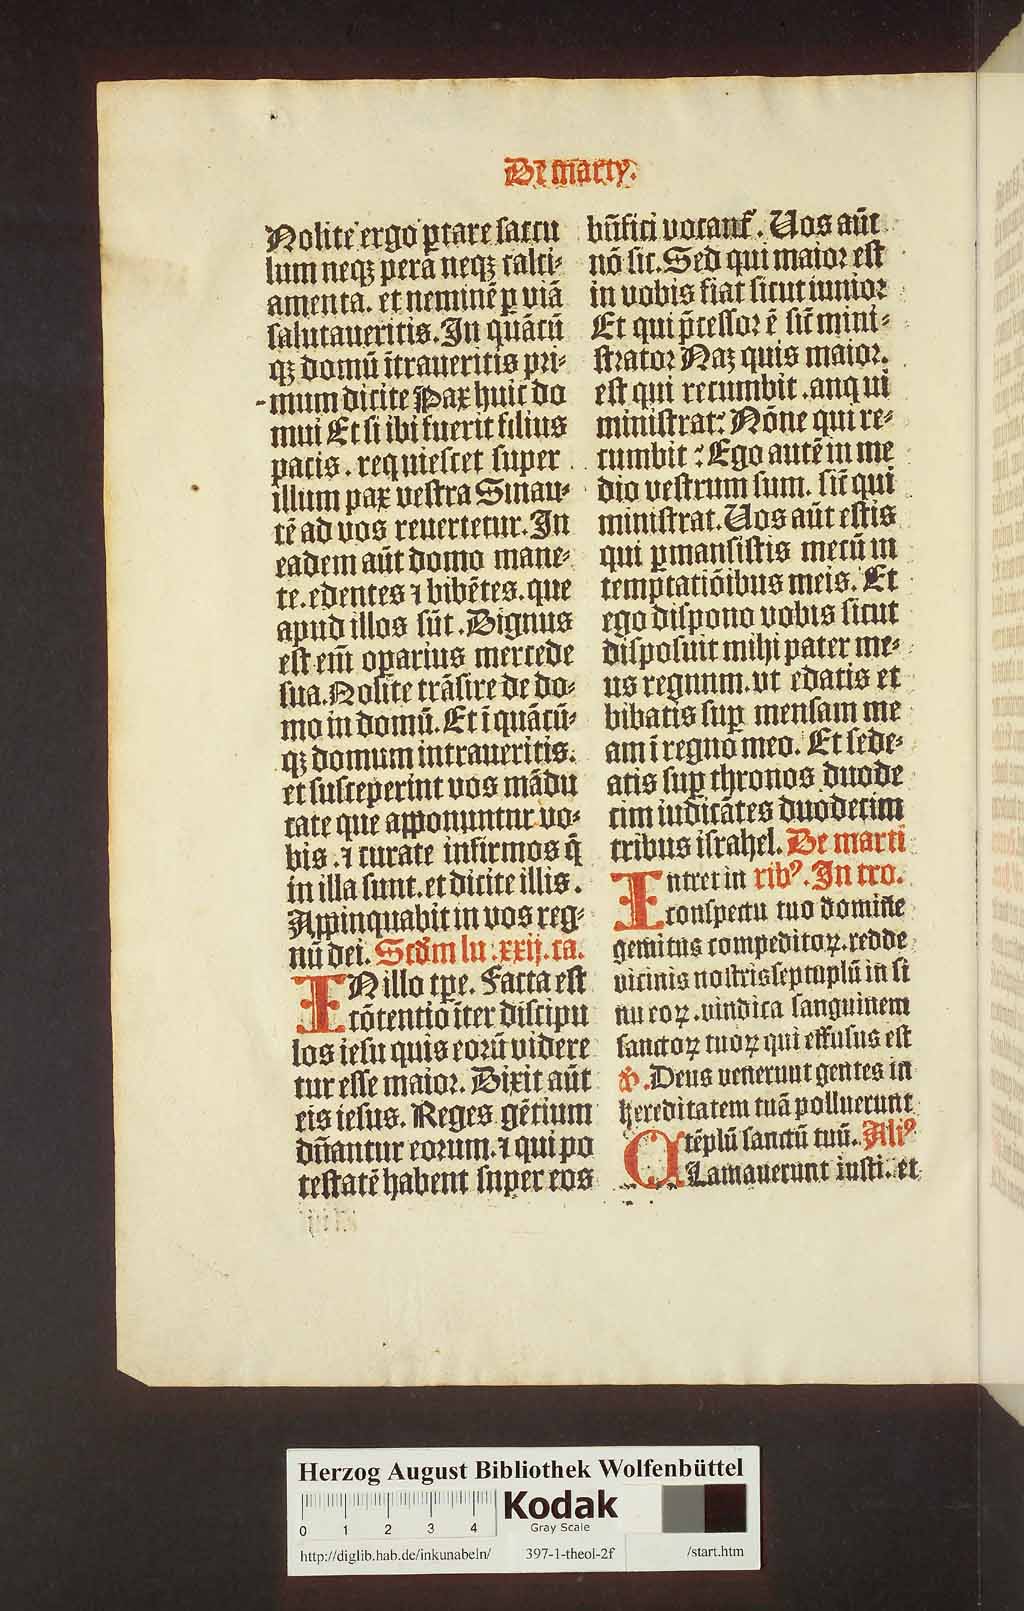 De marty.
Nolite ergo ꝑtare saccu
lum neqꝫ pera neqꝫ calci⸗
amenta. et neminē ꝑ viā
salutaueritis. In quācū
qꝫ domū ītraueritis pri⸗
mum dicite Pax huic do
mui Et si ibi fuerit filius
pacis. requiescet super
illum pax vestra Sinau⸗
tē ad vos reuertetur. In
eadem aūt domo mane⸗
te. edentes ⁊ bibētes. que
apud illos sūt. Dignus
est em̄ oꝑarius mercede
sua. Nolite trāsire de do⸗
mo in domū. Et ī quācū⸗
qꝫ domum intraueritis.
et susceperint vos mādu
cate que apponuntur vo⸗
bis. ⁊ curate infirmos q̄
in illa sunt. et dicite illis.
Appinquabit in vos reg⸗
nū dei. Scd̄m lu. xxij. ca.
IN illo tꝑe. Facta est
cōtentio īter discipu
los iesu quis eorū videre
tur esse maior. Dixit aūt
eis iesus. Reges gētium
dn̄antur eorum. ⁊ qui po
testatē habent super eos
bn̄fici vocant᷑. Uos aūt
nō sic. Sed qui maior est
in vobis fiat sicut iunior
Et qui p̄cessor ē sic̄ mini⸗
strator Naꝫ quis maior.
est qui recumbit. an qui
ministrat: Nōne qui re⸗
cumbit: Ego autē in me
dio vestrum sum. sic̄ qui
ministrat. Uos aūt estis
qui ꝑmansistis mecū in
temptatiōibus meis. Et
ego dispono vobis sicut
disposuit mihi pater me⸗
us regnum. vt edatis et
bibatis suꝑ mensam me
am ī regno meo. Et sede⸗
atis suꝑ thronos duode
cim iudicātes duodecim
tribus israhel. De marti
Intret in ribꝰ. In tro.
conspectu tuo domine
gemitus compeditoꝝ. redde
vicinis nostris septuplū in si
nu eoꝝ. vindica sanguinem
sanctoꝝ tuoꝝ qui effusus est
ps̄. Deus venerunt gentes in
hereditatem tuā polluerunt
tēplū sanctū tuū. Aliꝰ
CLamauerunt iusti. et
Herzog August Bibliothek Wolfenbüttel
0 1 2 3 4
Kodak
Gray Scale
http://diglib.hab.de/inkunabeln/ 397-1-theol-2f /start.htm